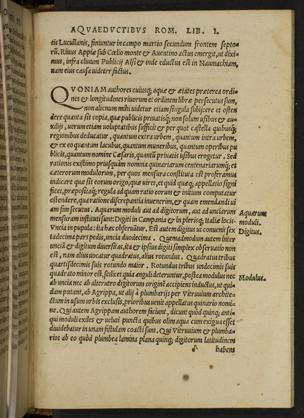 AQVAEDVCTIBVS ROM. LIB. I.
tis Lucullanis, finiuntur in campo martio secundum frontem septo-
rũ. Riuus Appiæ sub Cœlio monte & Auentino actus emergit, ut dixi-
mus, infra cliuum Publicij
nam eius causa uidetur fictus.
QVONIAM authores cuiusq; aquæ & ætates præterea ordi-
nes & longitudines riuorum et ordinem libræ persecutus sum,
non alienum mihi uidetur etiam singula subijcere et osten-
dere quanta sit copia, quæ publicis priuatisq; non solum usibus & au-
xilijs, uerum etiam uoluptatibus sufficit & per quot castella quibusq;
regionibus deducatur, quantum extra urbem, quantum intra urbem,
& ex eo quantum lacubus, quantum muneribus, quantum operibus pu
blicis, quantum nomine Cæsaris, quantũ priuatis usibus erogetur. Sed
rationis existimo priusquàm nomina quinariarum centenariarumq; et
cæterorum modulorum, per quos mensura constituta est proferamus
indicare quæ sit eorum origo, quæ uires, et quid quæq; appellatio signi
ficet, præpositaq; regula ad quam ratio eorum & initium computatur
ostendere, qua ratione discrepantia inuenerim, & quam emendandi ui
am sim secutus. Aquarum moduli aut ad digitorum, aut ad unciarum
mensuram instituti sunt: Digiti in Campania & in plerisq; Italiæ locis:
Vncia in
decima pars pedis, uncia duodecima. Quemadmodum autem inter
unciã & digitum diuersitas, ita & ipsius digiti simplex obseruatio non
est, nam alius uocatur quadratus, alius rotundus. Quadratus tribus
quartisdecimis suis rotundo maior. Rotundus tribus undecimis suis
quadrato minor est, scilicet quia anguli deteruntur, postea modulus nec
ab uncia nec ab alterutro digitorum originẽ accipiens inductus, ut qui
dam putant, ab Agrippa, ut alij à plumbarijs per Vitruuium archite-
ctum in usum urbis exclusis, prioribus uenit appellatus quinario nomi
ne. Qui autem Agrippam authorem faciunt, dicunt quòd quinq; anti-
qui moduli exiles & uelut puncta quibus olim aqua cum exigua esset
diuidebatur in unam fistulam coacti sunt. Qui Vitruuium & plumba-
rios ab eo quòd plumbea lamina plana quinq; digitorum latitudinem
habens
Aquarum
moduli.
Digitus.
Modulus.